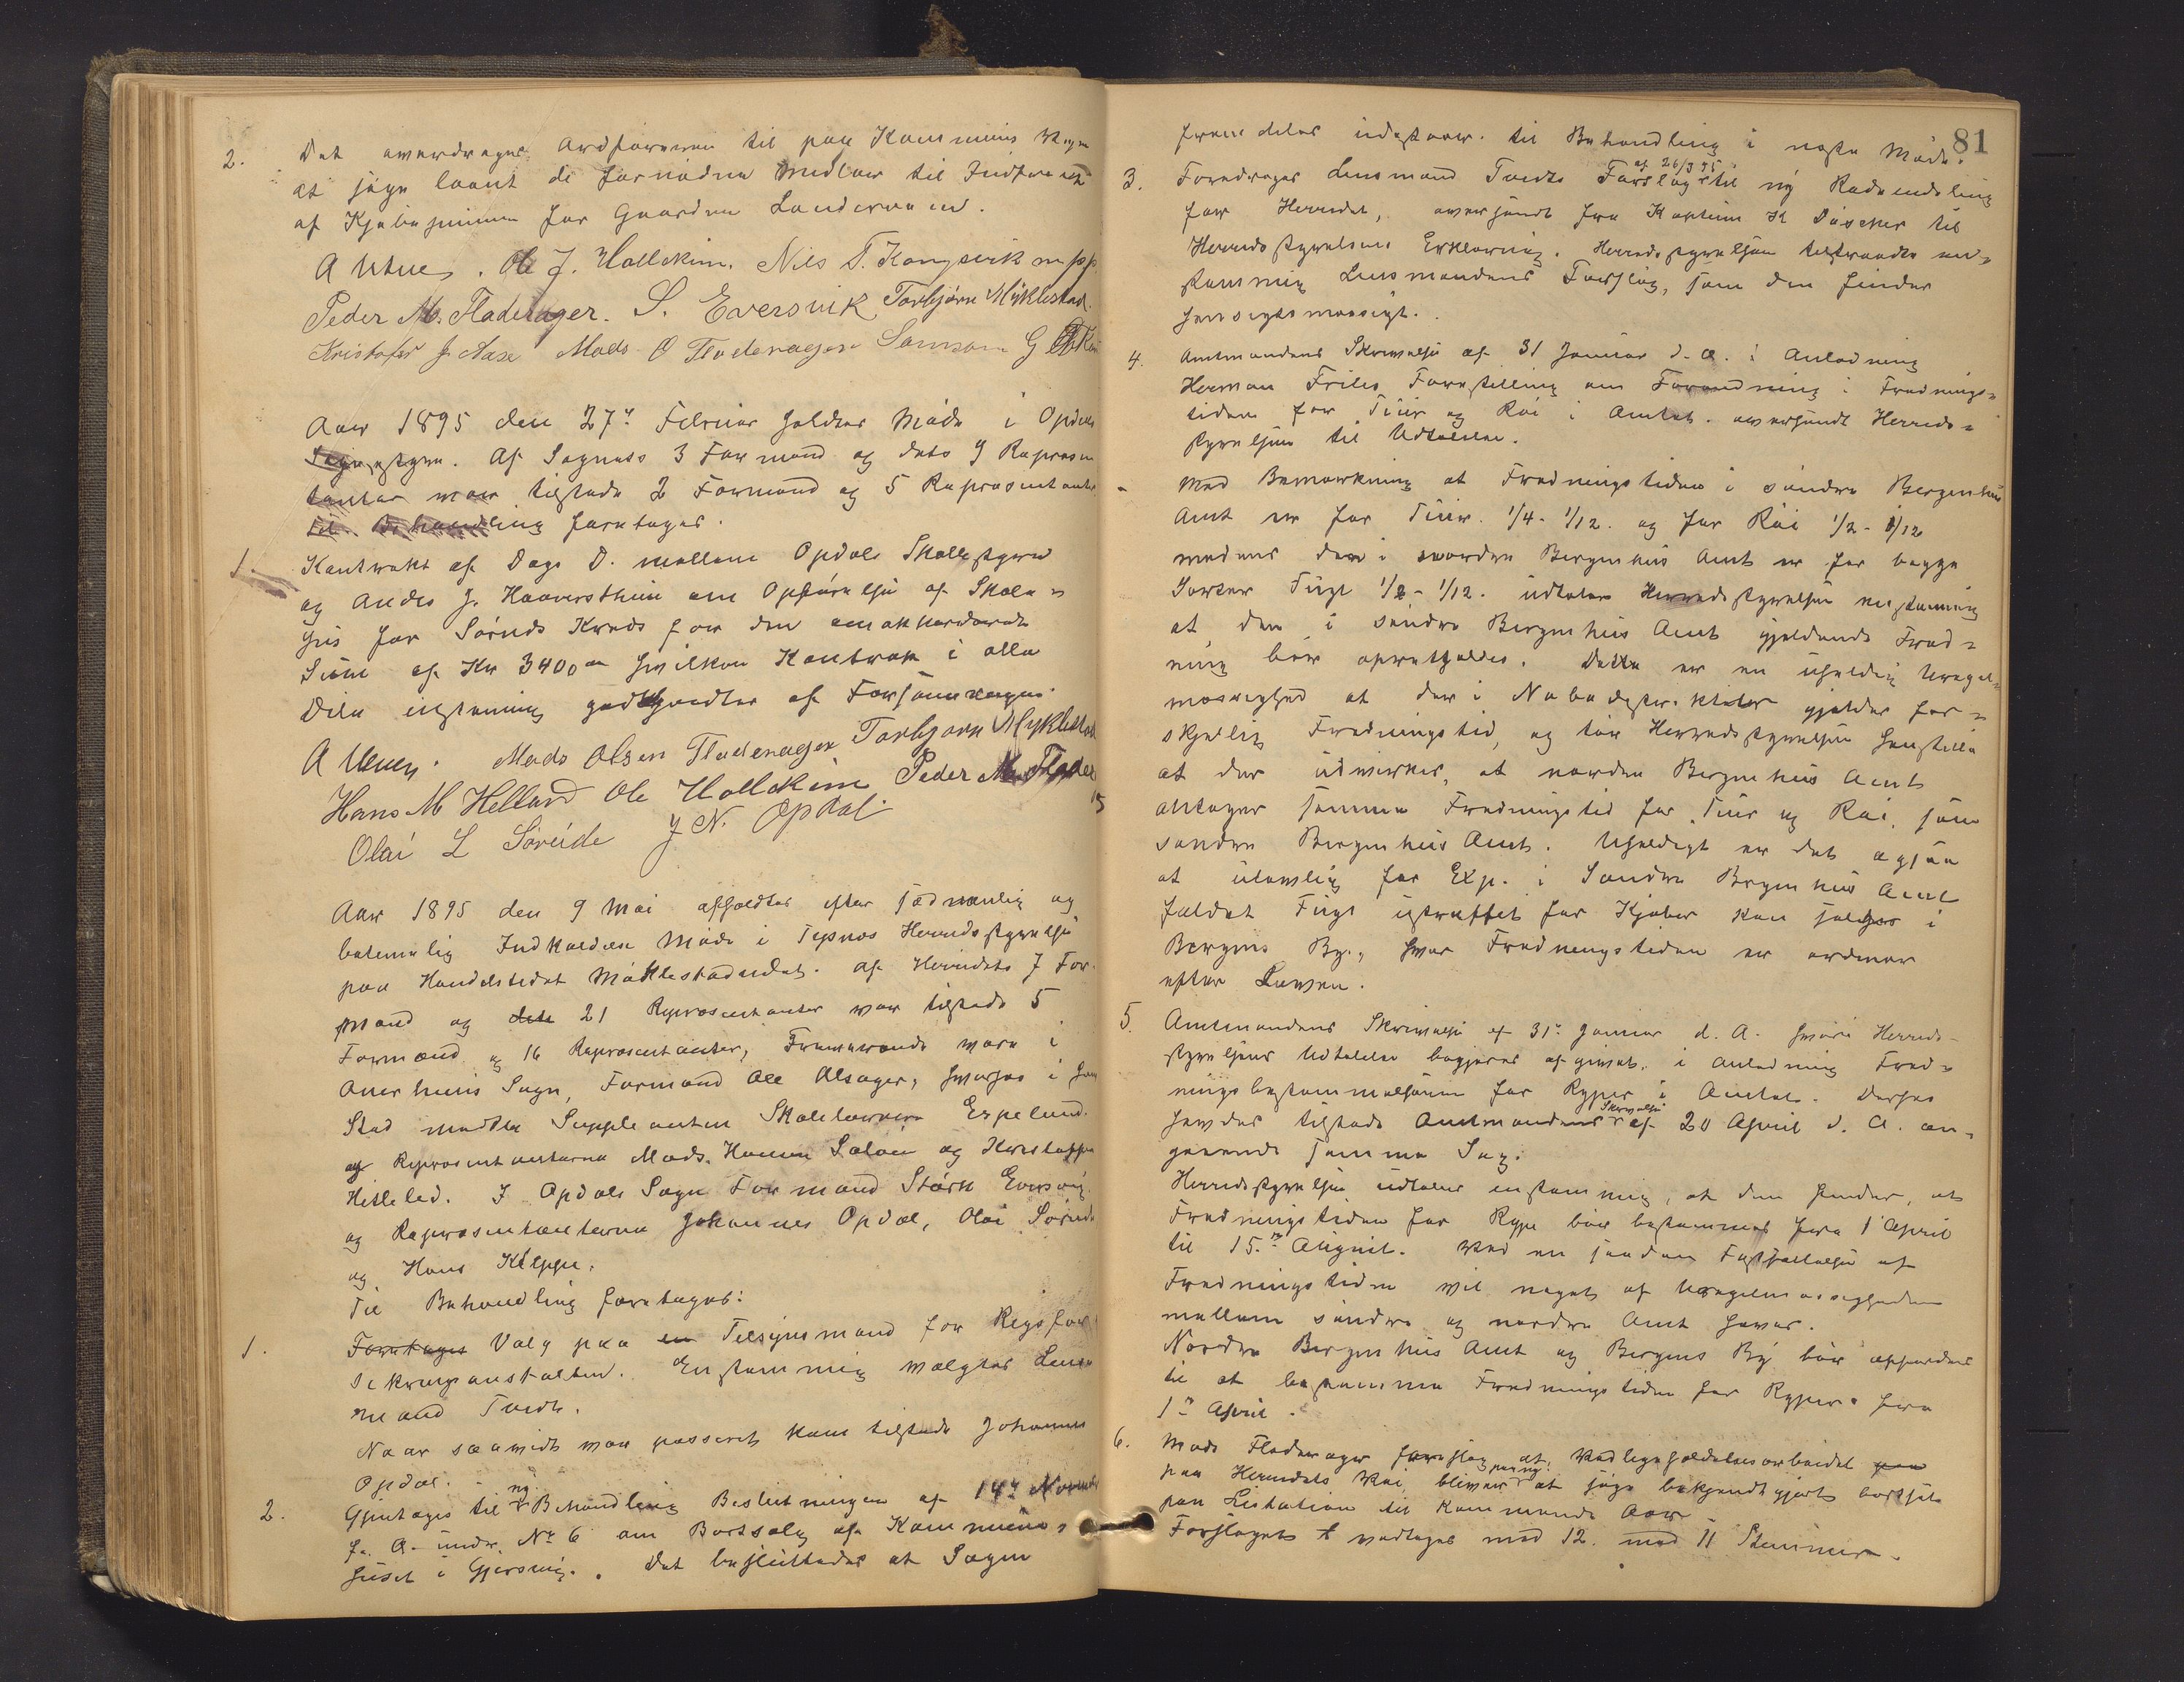 2. Det overdrages Ordføreren til paa Kommunens Vegne
at søge laant de fornødne Midler til Indfrielse
af Kjøbesummen for Gaarden Landervaand.
A Utne. Ole J. Hallekim. Nils T. Kongsvik m p p
Peder M. Fladerager. S. Eversvik Torbjørn Myklestad.
Kristofer J Aase Mads O Fladerager Samson G
Aar 1895 den 27de Februar holdtes Møde i Opdals
Sognestyre. Af Sognets 3 Formænd og dets 9 Repræsen
tanter var tilstede 2 Formænd og 5 Repræsentanter
Til Behandling foretoges.
1. Kontrakt af Dags D. mellem Opdals Skolestyre
og Anders J. Haaversthun om Opførelse af Skole=
hus for Søreids Kreds for den omakkorderede
Sum af Kr 3400 00 hvilken Kontrakt i alle
Dele enstemmig godkjendtes af Forsamlingen.
A Utne. Mads Olsen Fladerager Torbjørn Myklestad
Hans M Helland Ole Hallekim Peder M Flader
Olai L Søreide J N. Opdal
Aar 1895 den 9 Mai afholdtes efter sædvanlig og
betimelig Indkaldelse Møde i Tysnes Herredsstyrelse
paa Handelstedet Møklestadnedet. Af Herredets 7 For
mænd og dets 21 Repræsentanter var tilstede 5
Formænd og 16 Repræsentanter, Fraværende vare i
Onarheims Sogn, Formand Ole Alsager, hvorfor i hans
Sted mødte Suppleanten Skolelærer Espelund.
og Repræsentanterne Mads Hansen Laloei og Kristoffer
Hilleled. I Opdals Sogn Formand Størk Eversvig
og Repræsentanterne Johannes Opdal, Olai Søreide
og Hans Kleppe.
Til Behandling foretoges:
1. Foretages Valg paa en Tilsynsmand for Rigsfor
sikringsanstalten. Enstemmig valgtes Lens
mand Tvedt.
Naar saavidt var passeret kom tilstede Johannes
Opdal.
2. Gjentoges til ny Behandling Beslutningen af 14de November
f. A. under No 6 om Bortsalg af Kommune=
huset i Gjersvig. Det besluttedes at Sagen
81
fremdeles udestaar til Behandling i næste Møde.
3. Foredroges Lensmand Tvedts Forslag af 26/3 95 til ny Rodeinddeling
for Herredet, oversendt fra Kaptein K Døscher til
Herredsstyrelsens Erklæring. Herredsstyrelsen tiltraadte en=
stemmig Lensmandens Forslag, som den finder
hensigtsmæssigt.
4. Amtmandens Skrivelse af 31 Januar d. A. i Anledning
Herman Friles Forestilling om Forandring i Frednings=
tiden for Tiur og Røi i Amtet. oversendt Herreds=
styrelsen til Udtalelse.
- Med Bemærkning at Fredningstiden i søndre Bergenhus
Amt er for Tiur 1/4 - 1/12. og for Røi 1/2 - 1/12
medens den i nordre Bergenhus Amt er for begge
Sorter Fugl 1/2 - 1/12. udtaler Herredsstyrelsen enstemmig
at den i søndre Bergenhus Amt gjeldende Fred=
ning bør opretholdes. Dette er en uheldig Uregel=
mæssighed at der i Nabodistrikter gjelder for=
skjellig Fredningstid, og tør Herredsstyrelsen henstille
at der udvirkes, at nordre Bergenhus Amt
antager samme Fredningstid for Tiur og Røi, som
søndre Bergenhus Amt. Uheldigt er det ogsaa
at ulovlig for Exp. i Søndre Bergenhus Amt
fældet Fugl ustraffet for Kjøber kan sælges i
Bergens By, hvor Fredningstiden er ordnet
efter Loven.
5. Amtmandens Skrivelse af 31te Januar d. A. hvori Herreds=
styrelsens Udtalelse begjæres afgivet. i Anledning Fred=
ningsbestemmelserne for Ryper i Amtet. Derhos
havdes tilstede Amtmandens Skrivelse af 20 April d. A. an=
gaaende samme Sag.
Herredsstyrelsen udtaler enstemmig, at den finder, at
Fredningstiden for Rype bør bestemmes fra 1 April
til 15de August. Ved en saadan Fastsættelse af
Fredningstiden vil noget af Uregelmæssigheden
mellem søndre og nordre Amt hæves.
Nordre Bergenhus Amt og Bergens By bør opfordres
til at bestemme Fredningstiden for Ryper fra
1te April.
6. Mads Fladerager foreslog at Vedligeholdelsesarbeidet paa
paa Herredets Vei, bliver paany at søge bekjendtgjort bortsat
paa Licitation til kommende Aar
Forslaget vedtoges med 12 mod 11 Stemmer.